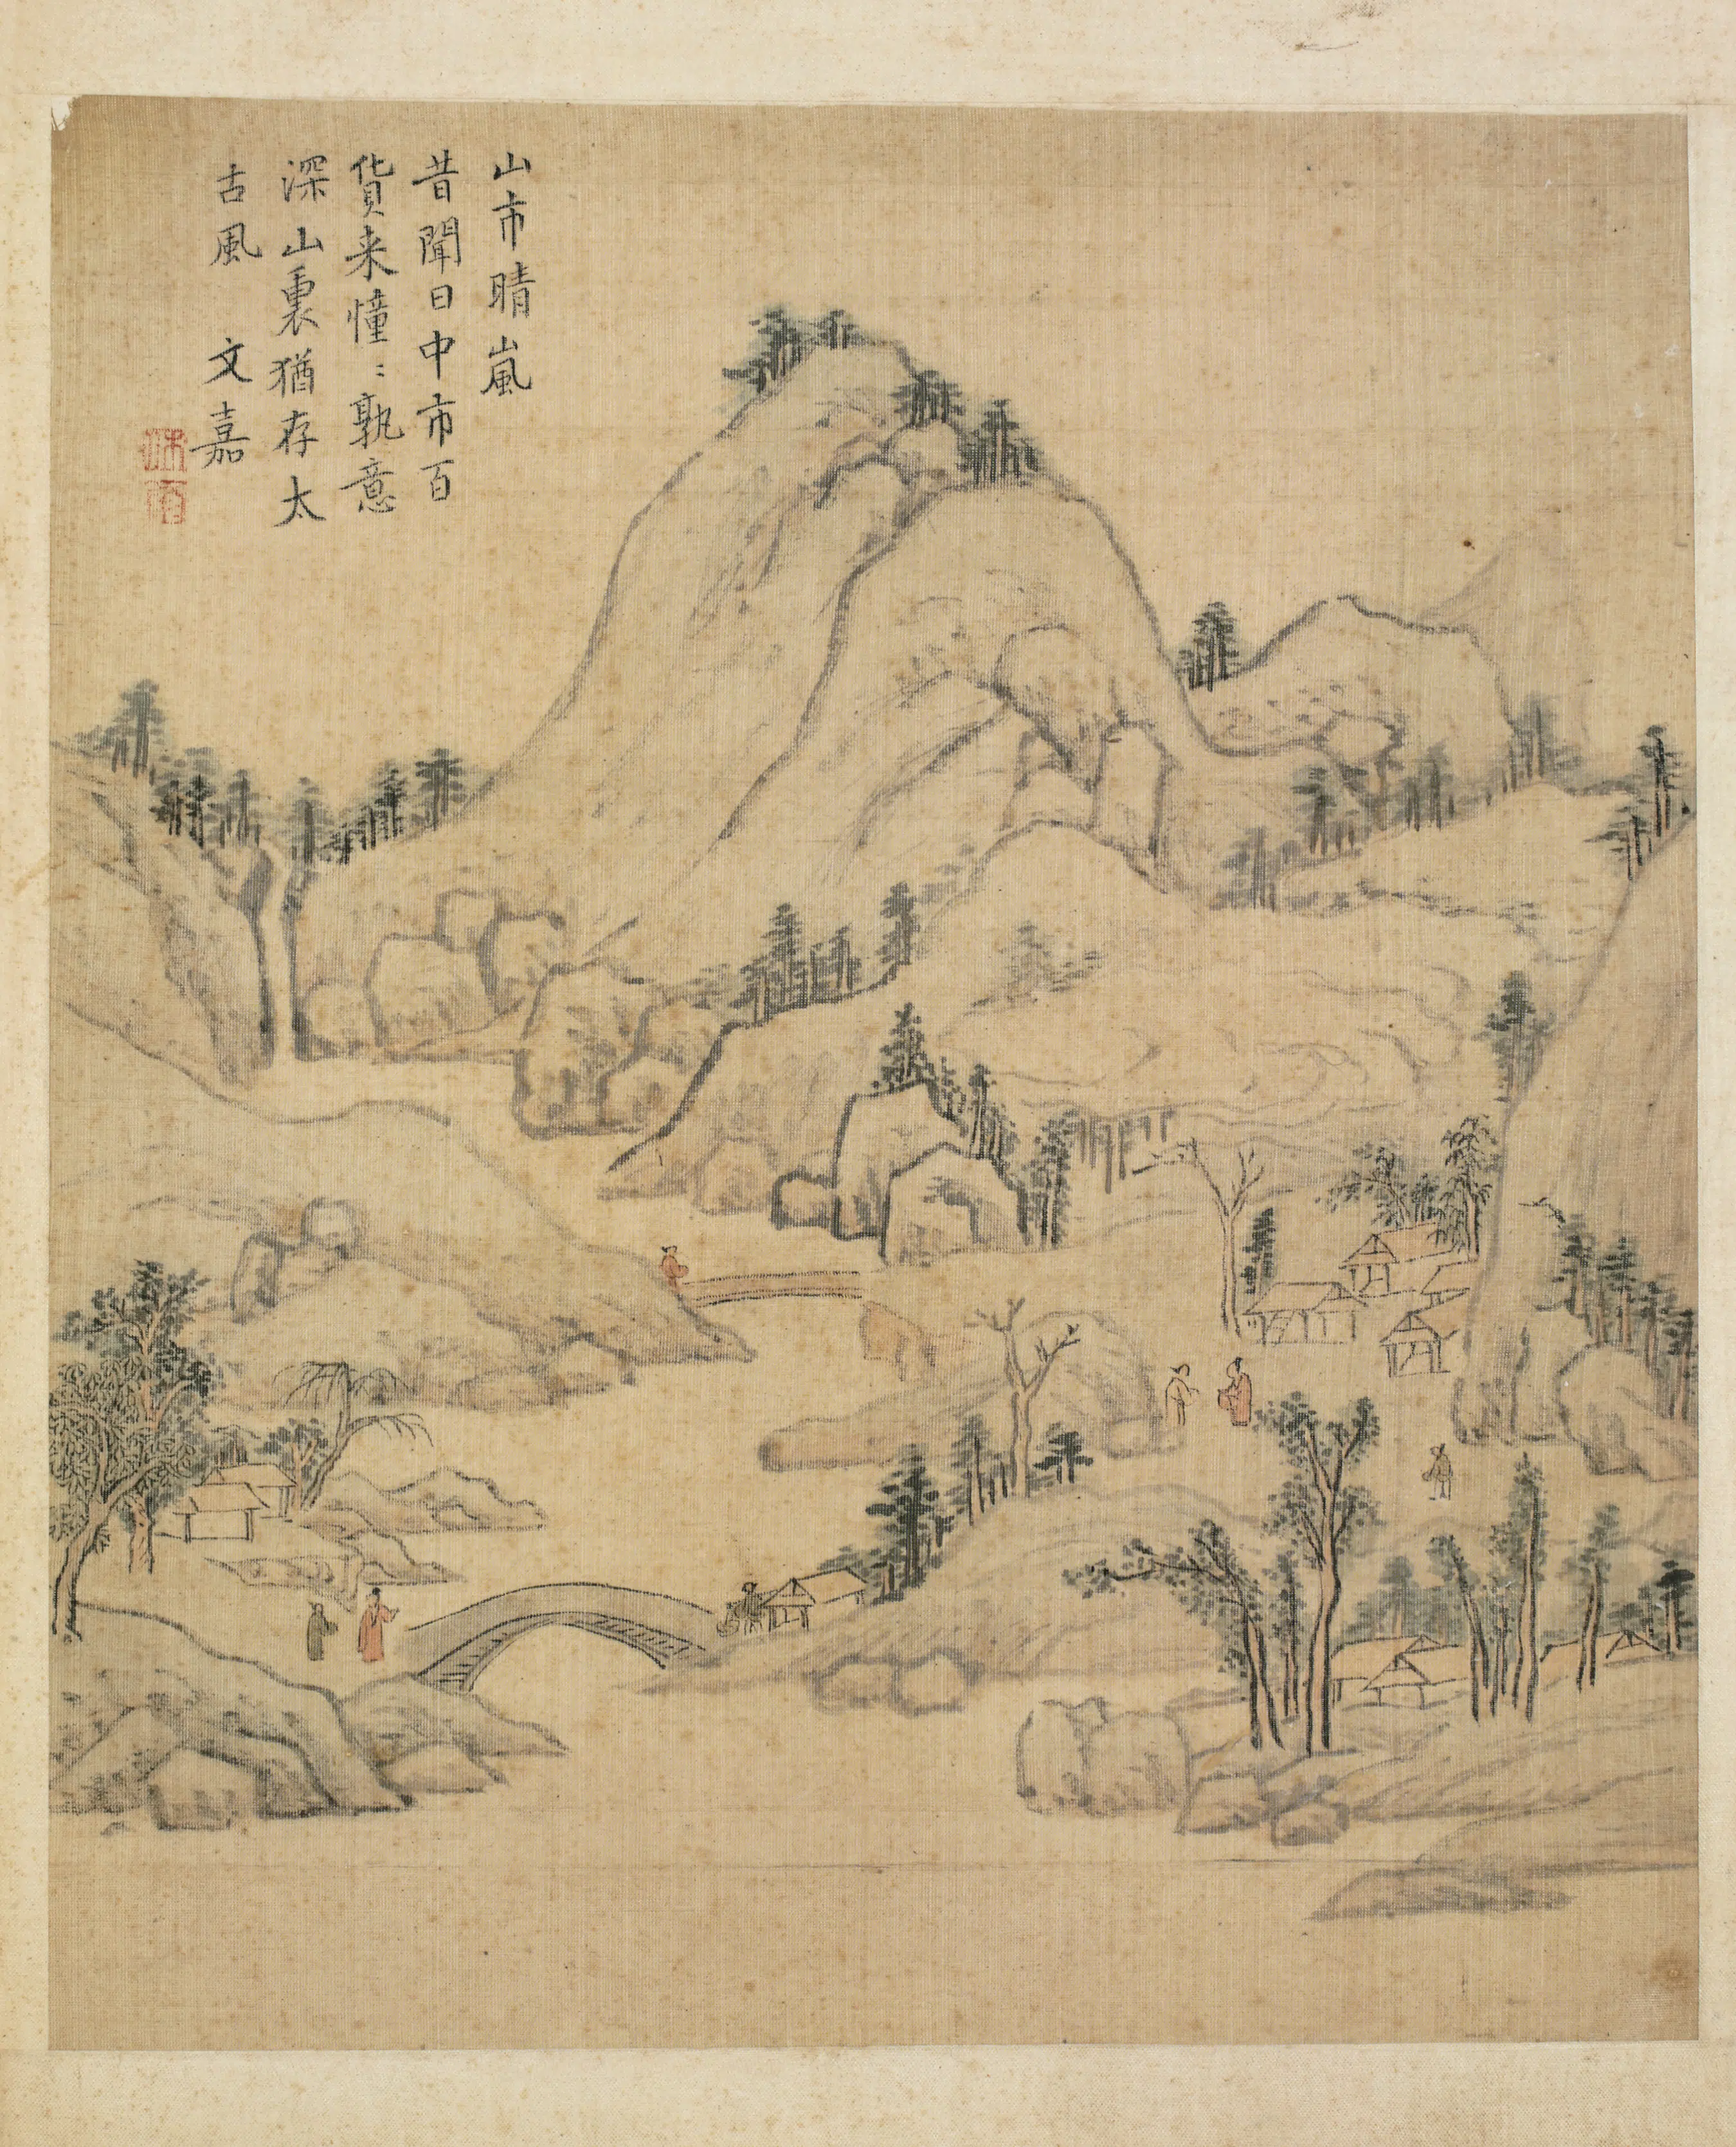 山市晴嵐
昔聞日中市百
貨来憧〻孰意
深山裏猶存太
古風　文嘉